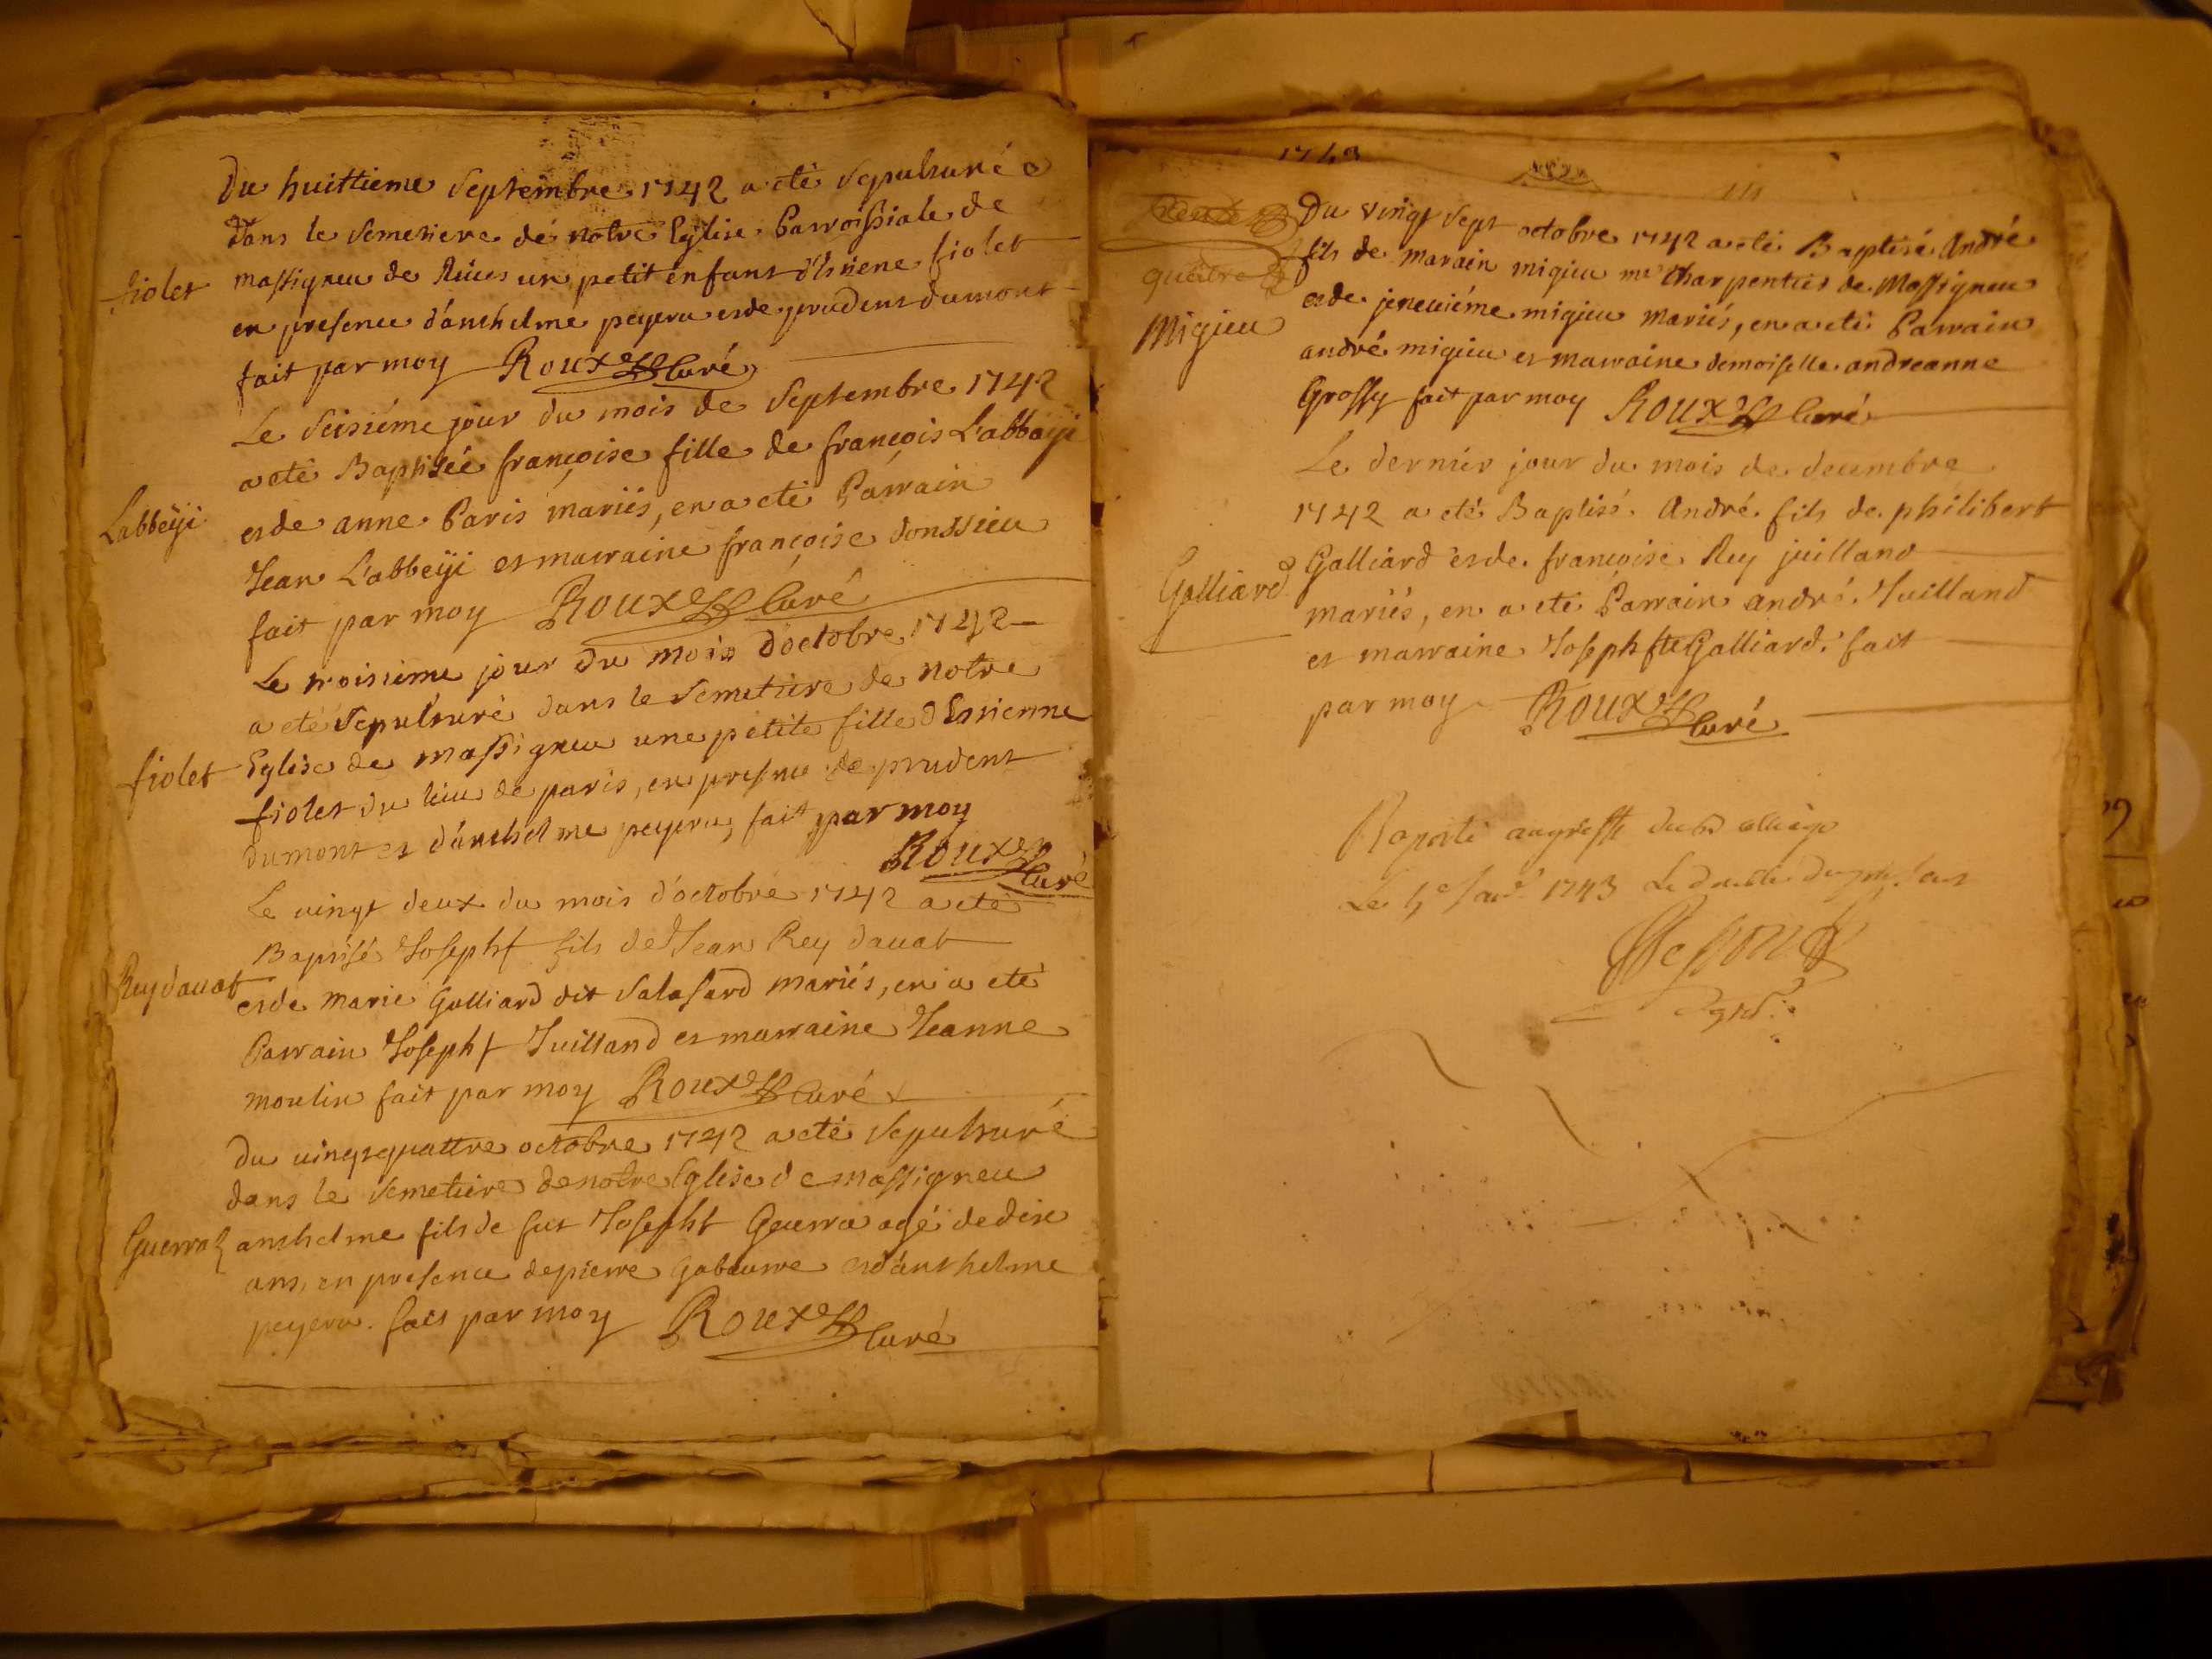 Du huittieme Septembre 1742 a eté Sepulturé
dans le Semetiere de notre Eglise Parroissiale de
fiolet
massigneu de Rives un petit enfant d'Etiene fiolet
en presence d'anthelme peyeru et de prudent dumont
fait par moy Roux Curé
Le Seisiéme jour du mois de Septembre 1742
a eté Baptisée françoise fille de françois L'abbeÿi
Labbeÿi
et de anne Paris mariés, en a eté Parrain
Jean L'abbeÿi et marraine françoise Doussieu
fait par moy Roux Curé
Le troisieme jour du mois d'octobre 1742
a eté Sepulturé dans le Semetiere de notre
fiolet
Eglise de massigneu une petite fille d'Estienne
fiolet du lieu de paris, en presence de prudent
dumont et d'anthelme peyeru, fait par moy
Roux Curé
Le vingt deux du mois d'octobre 1742 a eté
Baptisé Josepht fils de Jean Rey davat
Rey davat
et de marie Galliard dit Salasard mariés, en a eté
Parrain Josepht Juilland et marraine Jeanne
moulin fait par moy Roux Curé
Du vingt quattre octobre 1742 a eté Sepulturé
dans le Semetiere de notre Eglise de massigneu
Guerraz
anthelme fils de fut Josepht Guerra agé de dix
ans, en presence de pierre et d'anthelme
peyeru. fait par moy Roux Curé
Du vingt Sept octobre 1742 a eté Baptisé André
fils de marain migieu me Charpentier de Massigneu
quattre
et de jeneuiéme migieu Mariés, en a eté Parrain
Migieu
andré migieu et marraine demoiselle andreanne
Grossy fait par moy Roux Curé
Le dernier jour du mois de decembre
1742 a eté Baptisé André fils de philibert
Galliard
Galliard et de françoise Rey juilland
mariés, en a eté Parrain andré Juilland
et marraine Josephte Galliard. fait
par moy Roux Curé
1743